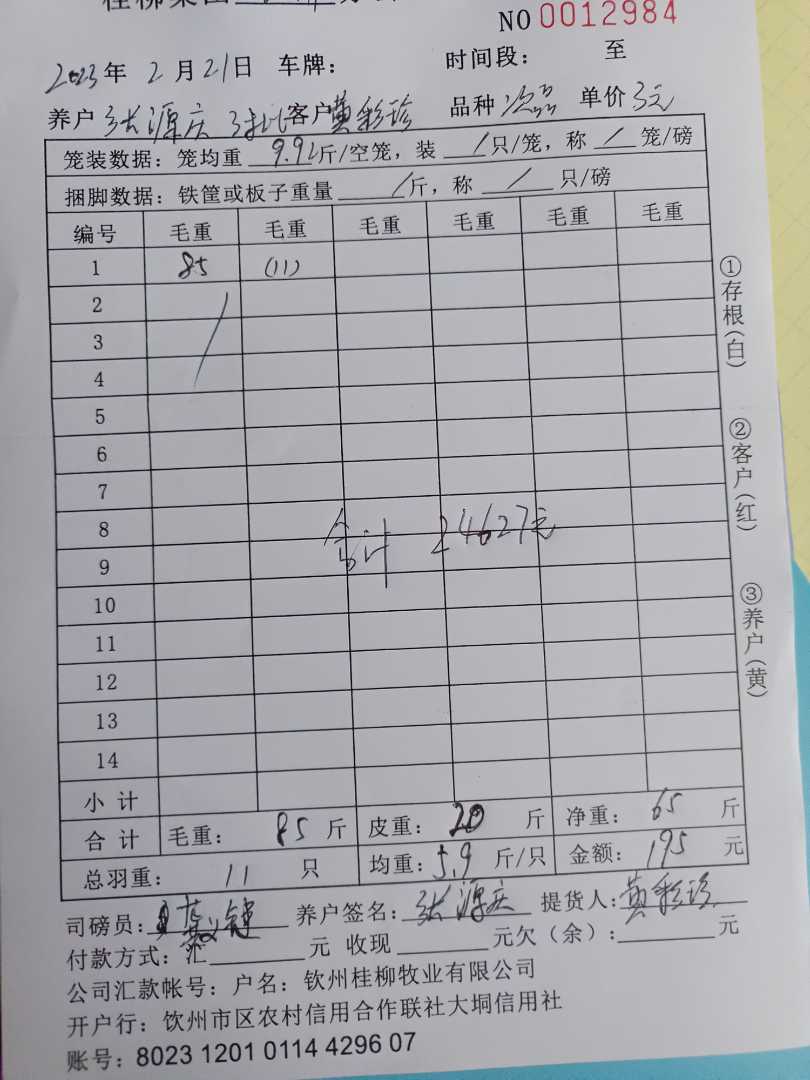 桂柳集团
NO 0012984
2023年 2月21日 车牌： 时间段： 至
养户 张源庆 客户 黄彩珍 品种 次品 单价 3元
笼装数据：笼均重 9.92斤/空笼，装 / 只/笼，称 / 笼/磅
捆脚数据：铁筐或板子重量 / 斤，称 / 只/磅
编号 毛重 毛重 毛重 毛重 毛重 毛重
1 85 (11)
2
3
4
5
6
7
8
合计 24627元
9
10
11
12
13
14
小计
合计 毛重： 85 斤 皮重： 20 斤 净重： 65 斤
总羽重： 11 只 均重：5.9 斤/只 金额： 195 元
司磅员： 养户签名：张源庆 提货人：黄彩珍
付款方式：汇 元 收现 元欠（余）： 元
公司汇款帐号：户名：钦州桂柳牧业有限公司
开户行：钦州市区农村信用合作联社大垌信用社
账号：8023 1201 0114 4296 07
①存根（白）
②客户（红）
③养户（黄）